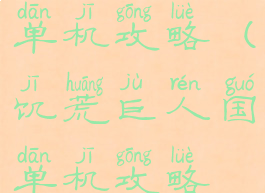 dān jī gōng lüè
单机攻略（
jī huāng jù rén guó
饥荒巨人国
dān jī gōng lüè
单机攻略